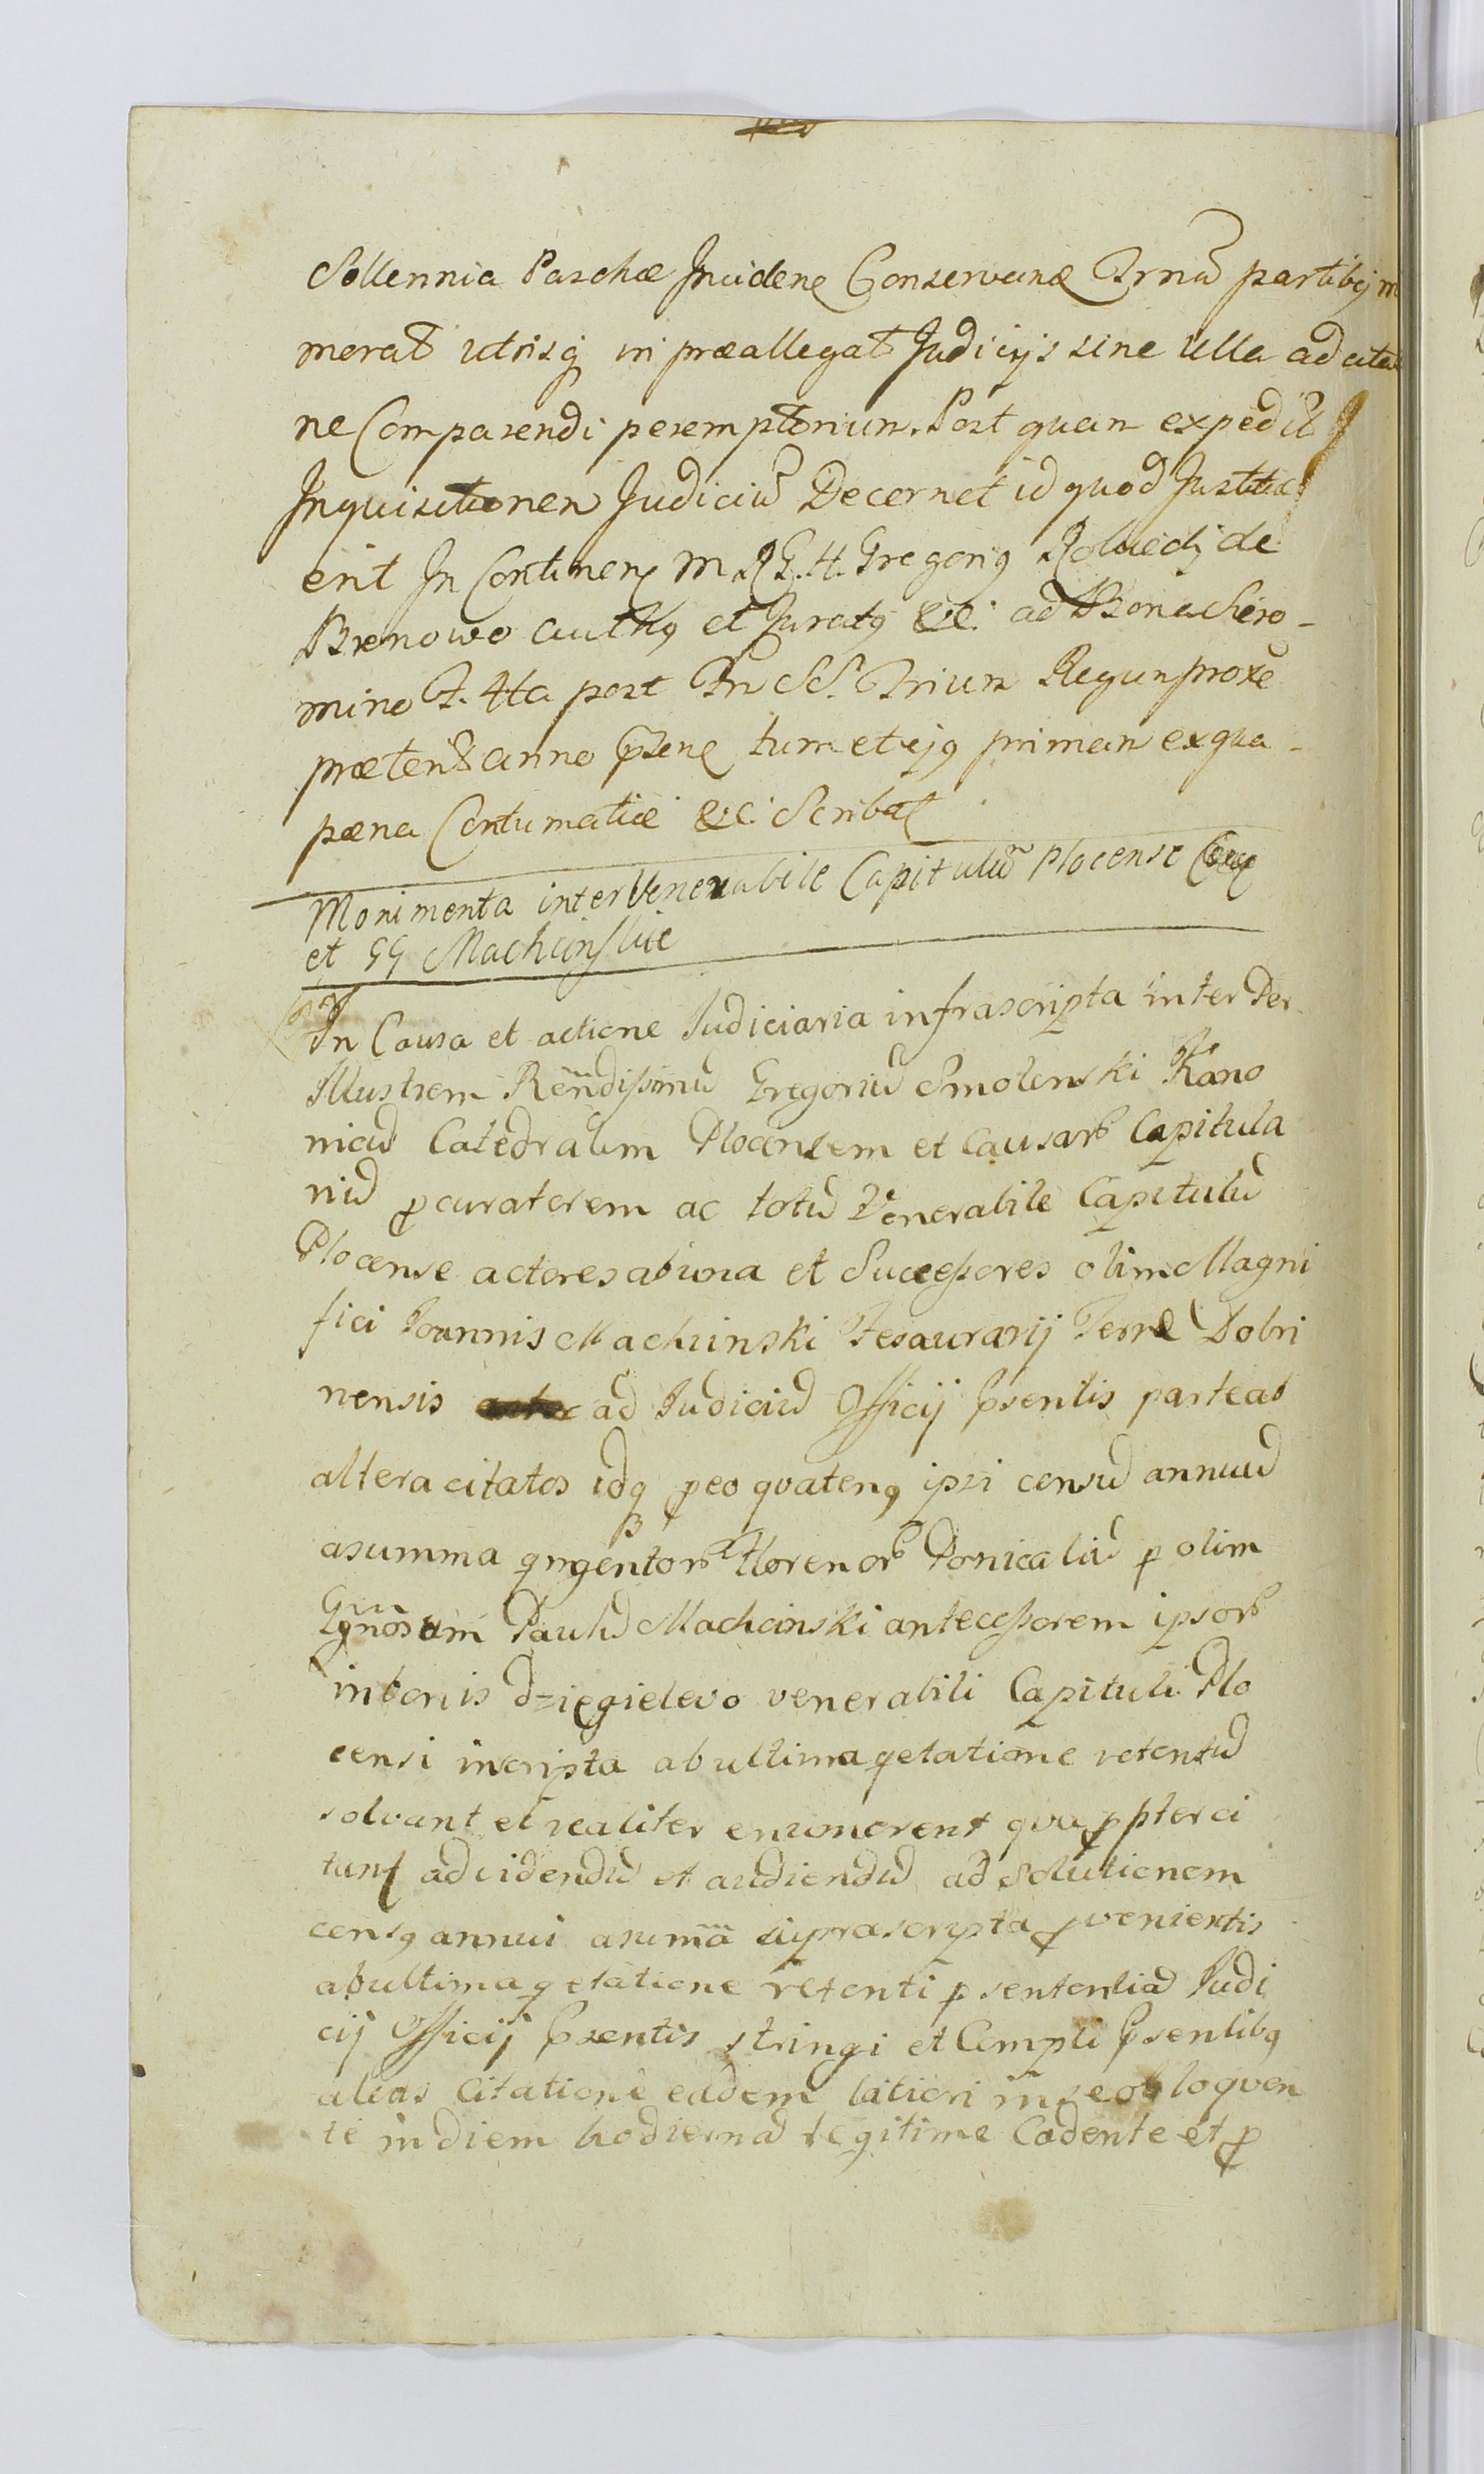 Sollennia Paschæ Incidenꝭ Conservanđ Trnũ partibꝯ m
merat utrisq in præallegat Judicijs sine ulla ad citatio
ne Comparendi peremptorium. Post quam expedit
Inquisitionem Judiciũ Decernet id quod Justitiæ
erit In Continenꝭ M G. H. Gregoriꝯ de
Brenowo authꝯ et Juratꝯ &c: ad Bona Siero-
mino F. 4ta post Fn SS. Trium Regum proxe
præterit anno Prꝭenꝭ tum et ejꝯ primam ex qua-
pæna Contumatiæ &c: Scribat
Monimenta inter Venerabile Capitulũ Plocense
et GG Machcinskie
In Causa et actione Judiciaria infrascripta inter Per
Illustrem Rēndissimũ Gregoriũ Smolenski Kano
nicũ Catedralem Plocensem et Causarꝝ Capitula
riũ ꝓcuratorem ac totũ Venerabile Capitulũ
Plocense actores ab una et Successores olim Magni
fici Joannis Machcinski Tesaurarij Terre Dobri
nensis ad Judiciũ Officij Prsentis parte ab
altera citatos idq ꝑeo quatenꝯ ipsi censũ annuũ
a summa qngentorꝝ Florenorꝝ Ponicaliũ ꝑ olim
Gnosum Paulũ Machcinski antecessorem ipsorꝝ
in bonis Dzięgielewo venerabili Capituli Plo
censi inscripta ab ultima qetatione retentũ
solvant et realiter enumerent qua ꝓpter ci
tant ad videndũ et audiendũ ad Solutionem
censꝯ annui a sumā suprascripta ꝓvenientis
ab ultima qetatione retenti ꝑ sententiã Judi
cij Officij Prsentis stringi et Compli Prsentibꝯ
alias Citatione eadem latiori in se ob loquen
te in diem hodiernã legitime Cadente et ꝓ